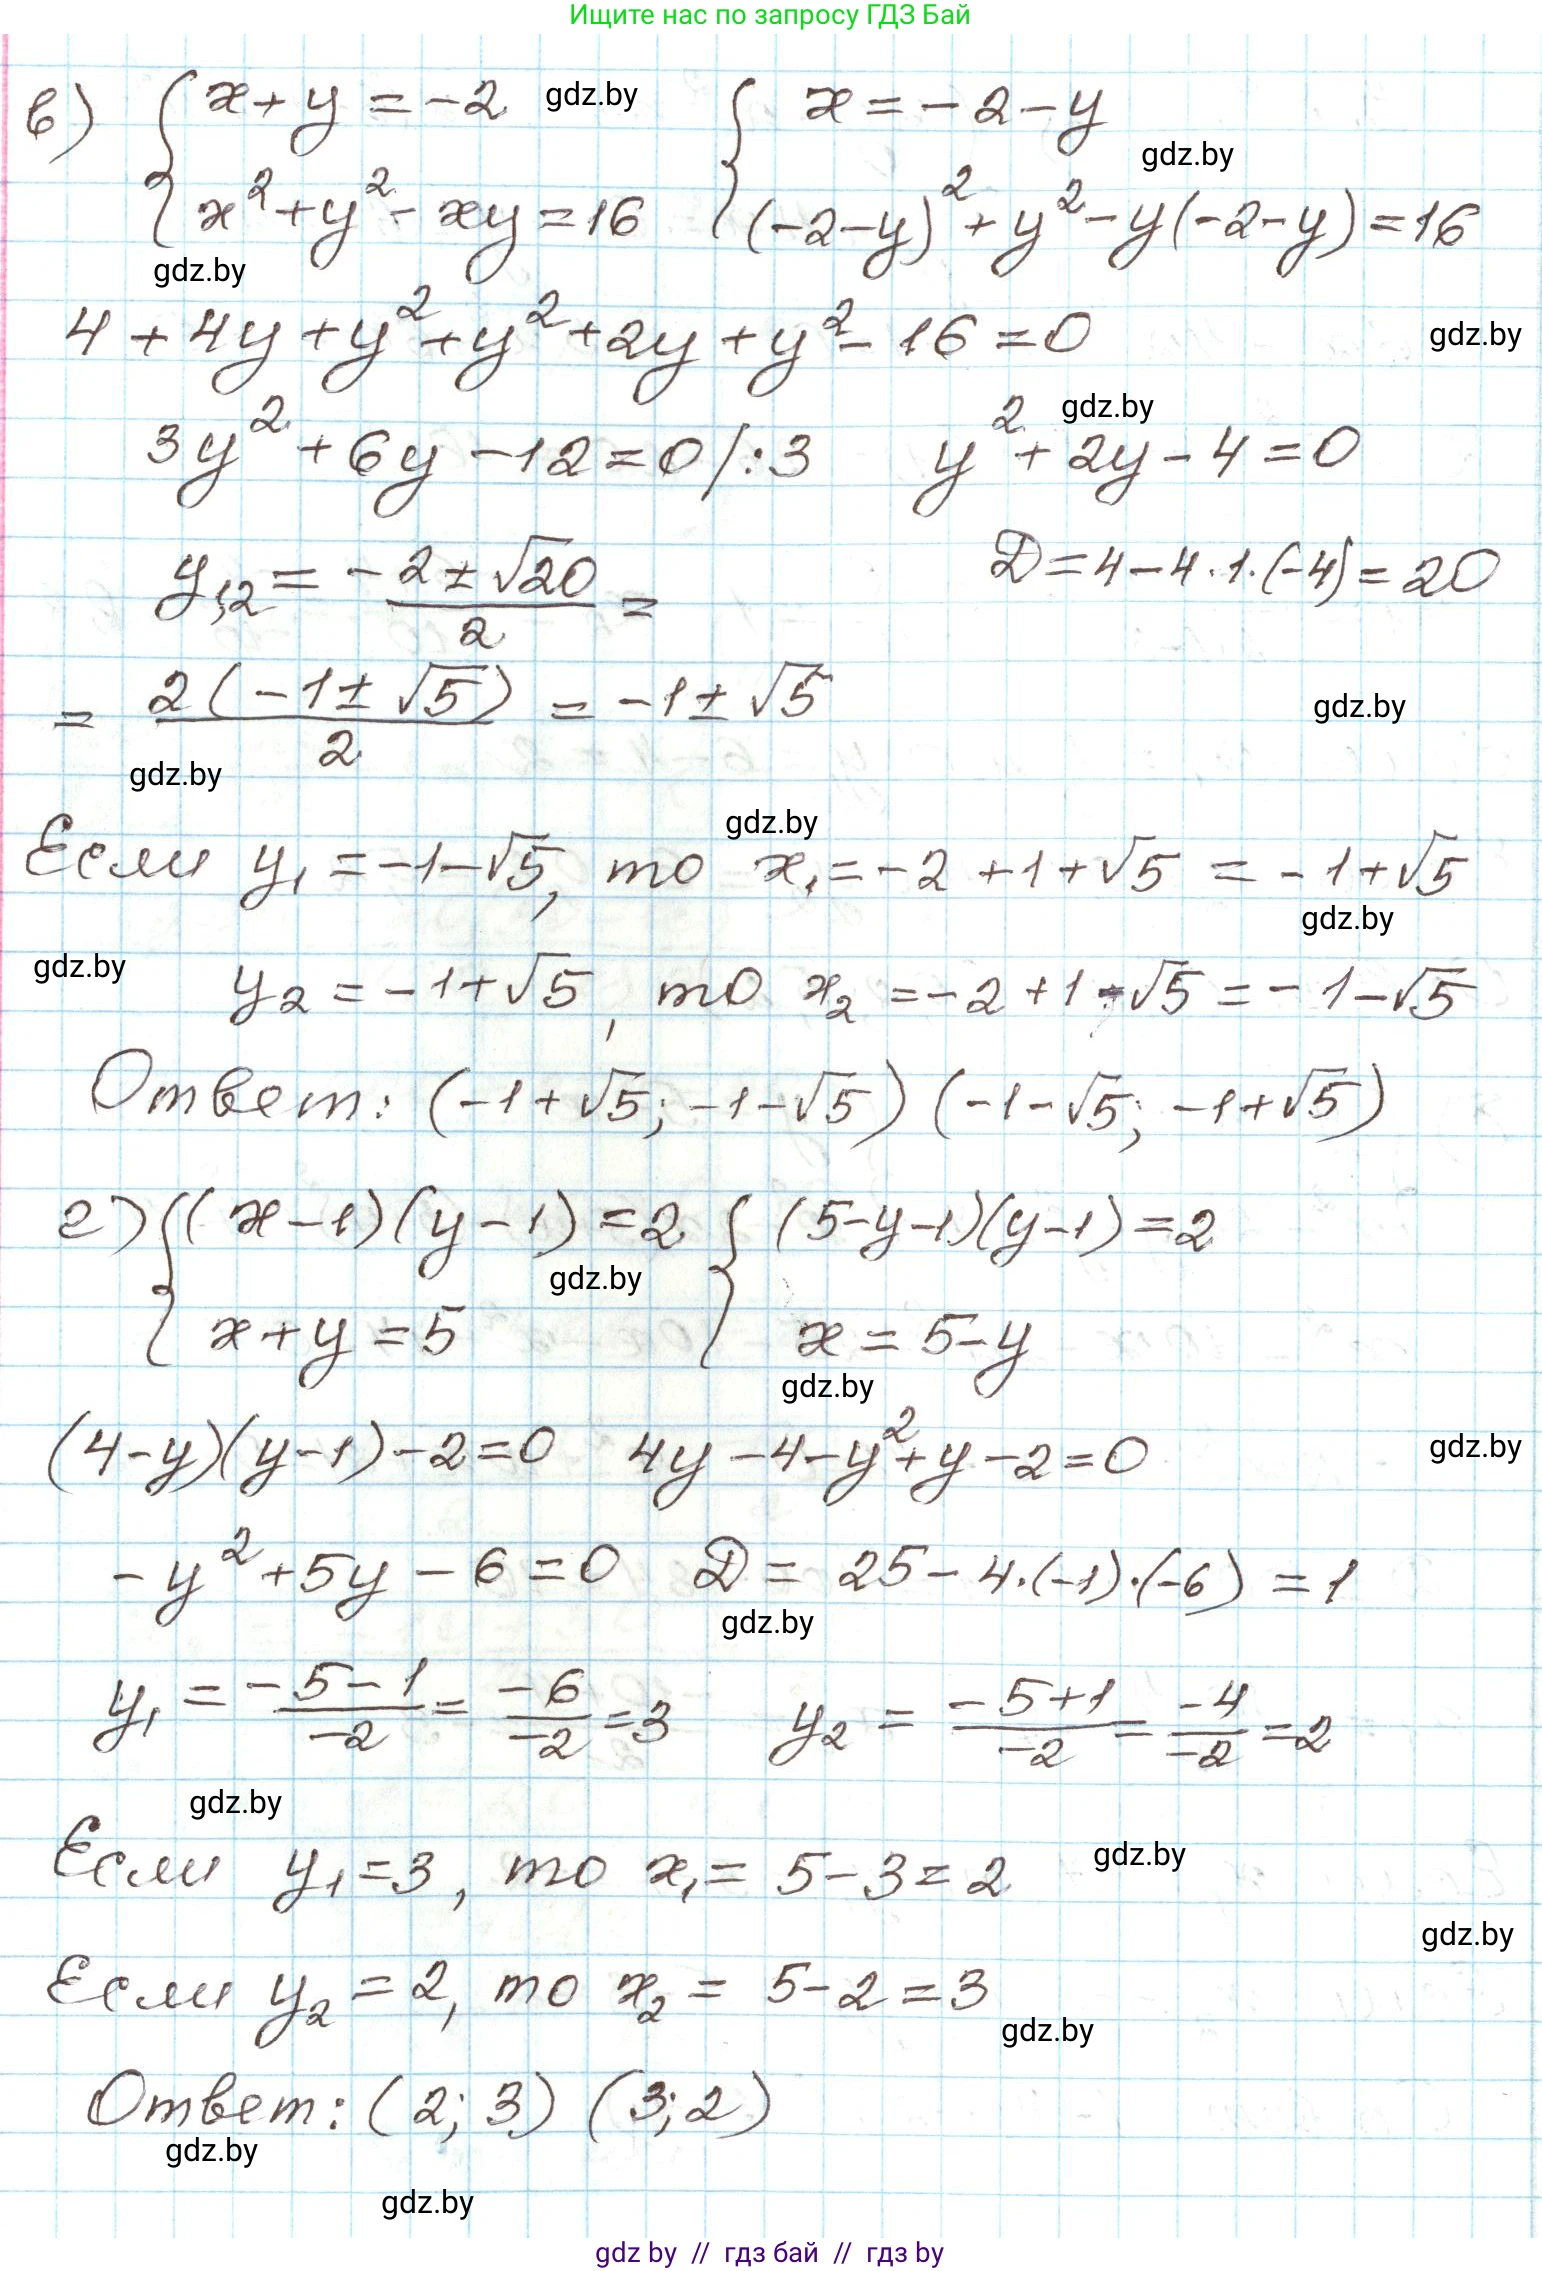 Ищите нас по запросу ГДЗ Бай
в) { x + y = -2 gdz.by { x = -2 - y
gdz.by
x² + y² - xy = 16 (-2-y)² + y² - y(-2-y) = 16
gdz.by
4 + 4y + y² + y² + 2y + y² - 16 = 0 gdz.by
gdz.by
3y² + 6y - 12 = 0 /:3 y² + 2y - 4 = 0
y1,2 = -2 ± √20 / 2 = D = 4 - 4·1·(-4) = 20
= 2(-1 ± √5) / 2 = -1 ± √5 gdz.by
gdz.by
gdz.by
Если y₁ = -1-√5, то x₁ = -2 + 1 + √5 = -1 + √5
gdz.by
gdz.by
y₂ = -1+√5, то x₂ = -2 + 1 - √5 = -1 - √5
Ответ: (-1+√5; -1-√5) (-1-√5; -1+√5)
г) { (x-1)(y-1) = 2 { (5-y-1)(y-1) = 2
gdz.by
x + y = 5 x = 5-y
gdz.by
(4-y)(y-1) - 2 = 0 4y - 4 - y² + y - 2 = 0 gdz.by
-y² + 5y - 6 = 0 D = 25 - 4·(-1)·(-6) = 1
gdz.by
y₁ = -5-1 / -2 = -6 / -2 = 3 y₂ = -5+1 / -2 = -4 / -2 = 2
gdz.by
Если y₁ = 3, то x₁ = 5 - 3 = 2 gdz.by
gdz.by
Если y₂ = 2, то x₂ = 5 - 2 = 3
gdz.by
Ответ: (2; 3) (3; 2)
gdz.by
gdz.by
gdz by // гдз бай // гдз by